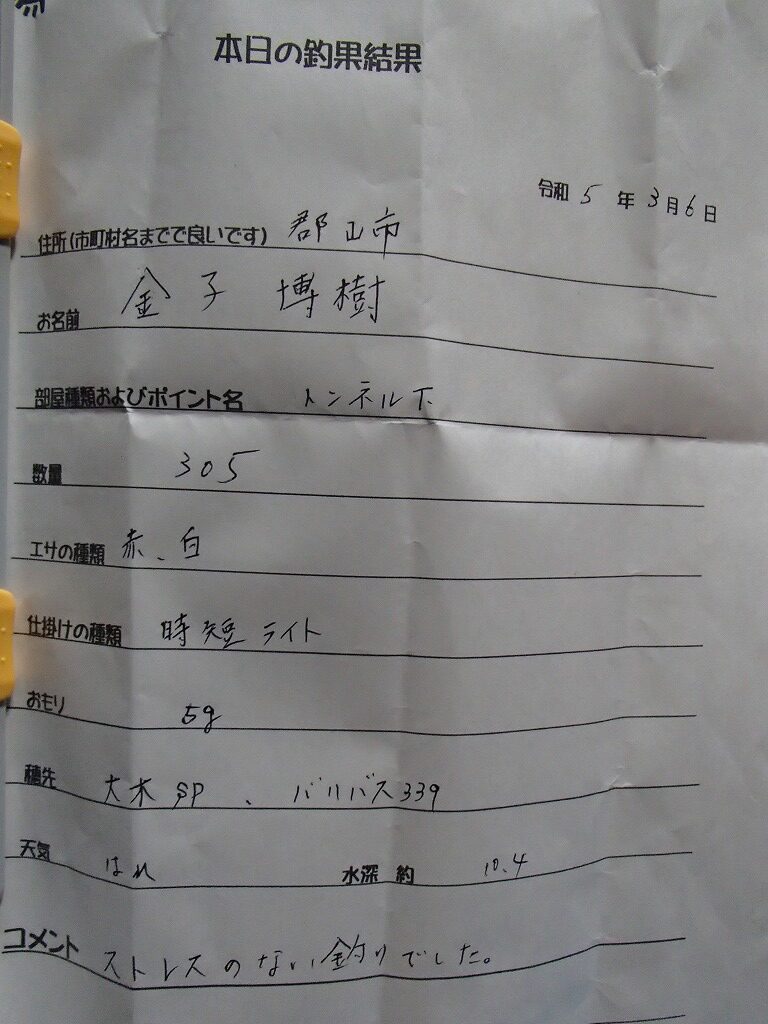 本日の釣果結果
令和 5 年 3月 6日
住所(市町村名までで良いです) 郡山市
お名前 金子 博樹
部屋種類およびポイント名 トンネル下
数量 305
エサの種類 赤、白
仕掛けの種類 時短ライト
おもり 5g
穂先 大木SP、バリバス339
天気 はれ 水深 約 10.4
コメント ストレスのない釣りでした。